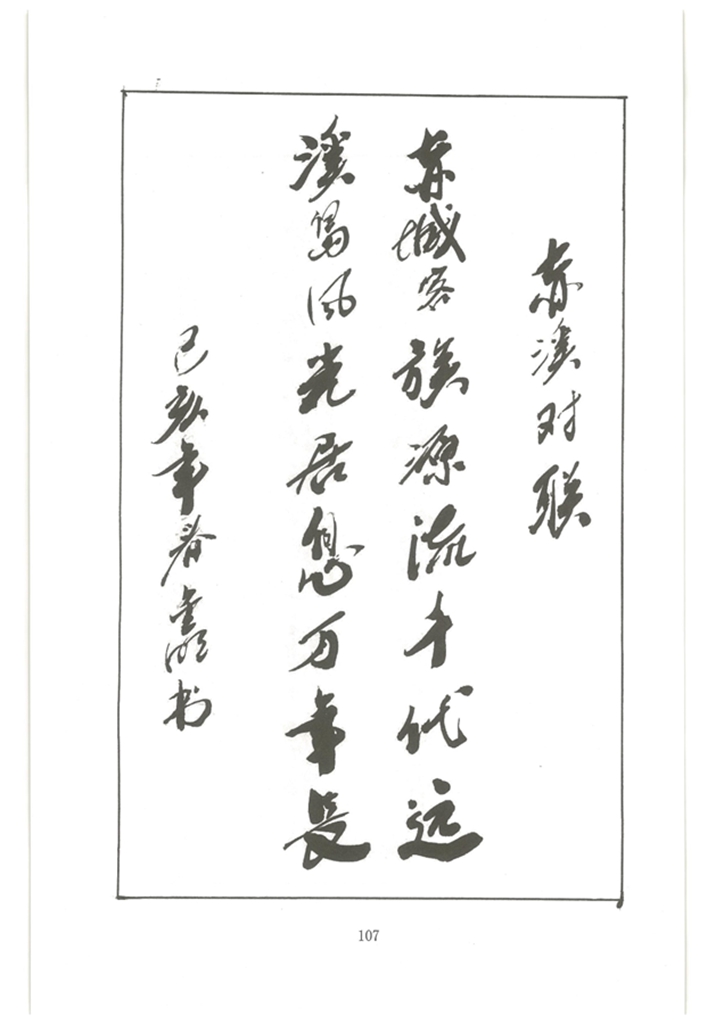 赤溪对联
赤城客族源流千代远
溪岛风光居息万年长
己亥年春书
107